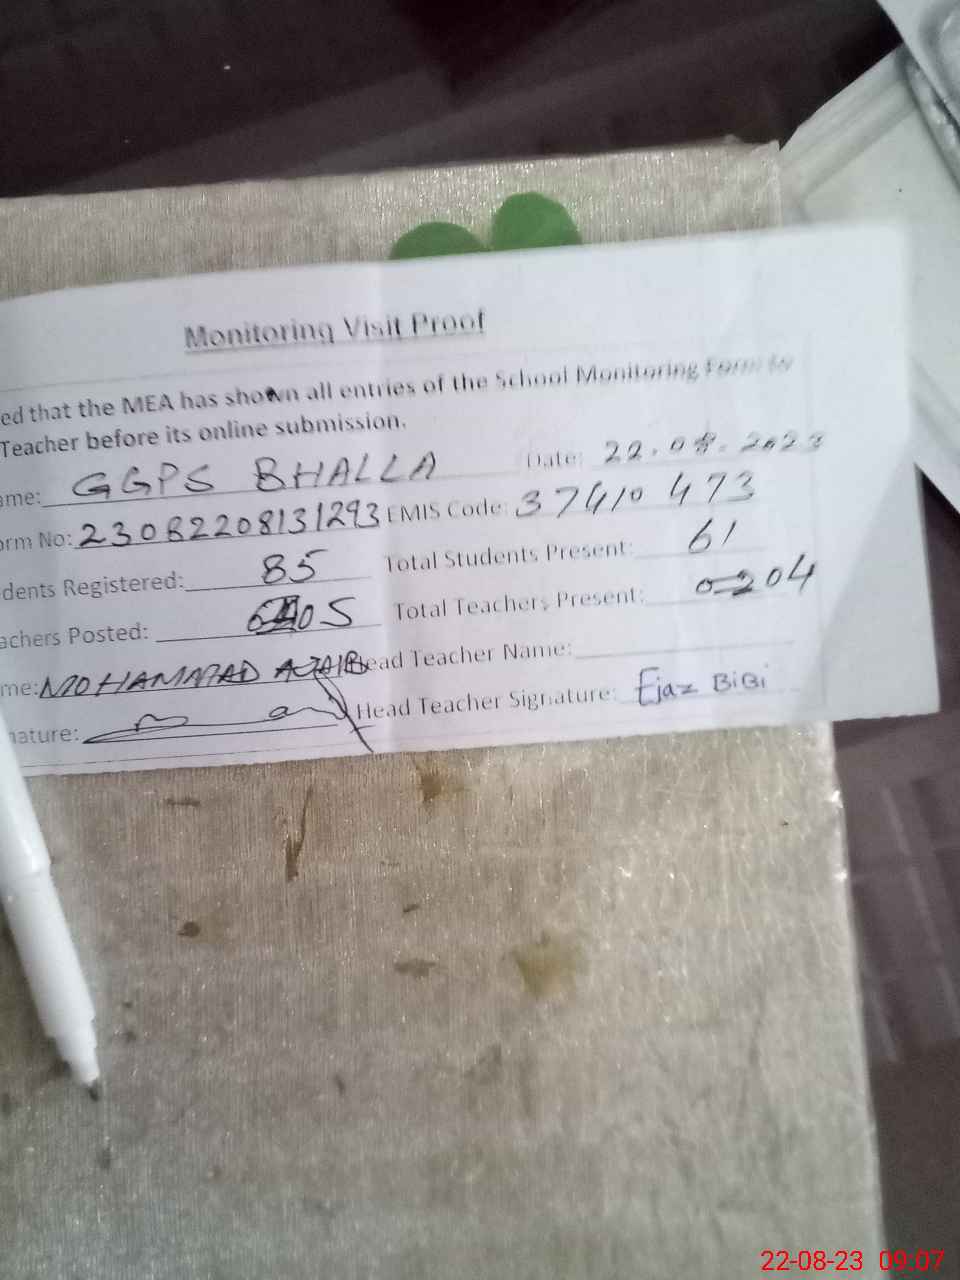 Monitoring Visit Proof
ed that the MEA has shown all entries of the School Monitoring Form by
Teacher before its online submission.
ame: GGPS BHALLA Date: 22.08.2023
orm No: 23082208131293 EMIS Code: 37410 473
dents Registered: 85 Total Students Present: 61
achers Posted: 05 Total Teachers Present: 04
me: MOHAMMAD Head Teacher Name:
nature: Head Teacher Signature: Ejaz BiBi
22-08-23 09:07